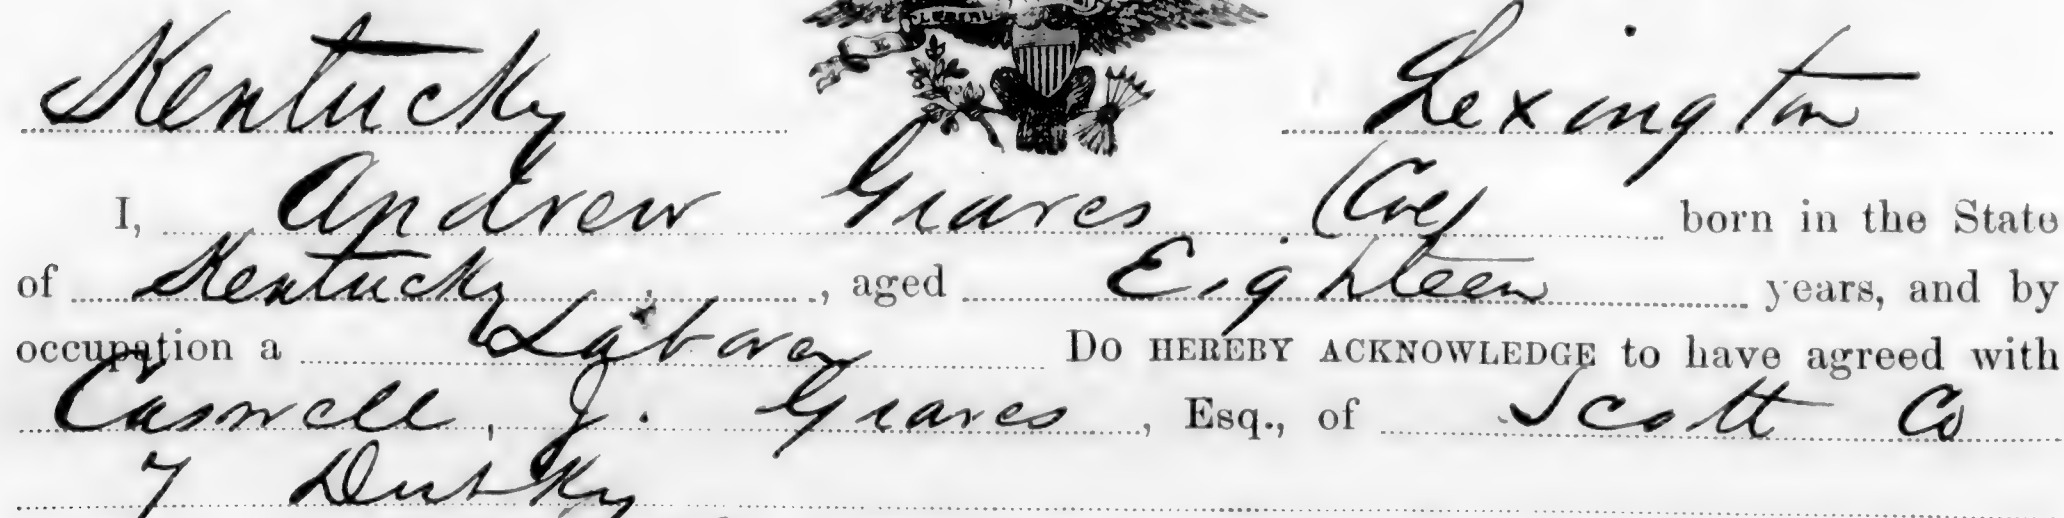 Kentucky Lexington
I, Andrew Graves (Col) born in the State
of Kentucky, aged Eighteen years, and by
occupation a Laborer Do HEREBY ACKNOWLEDGE to have agreed with
Caswell, J. Graves, Esq., of Scott Co